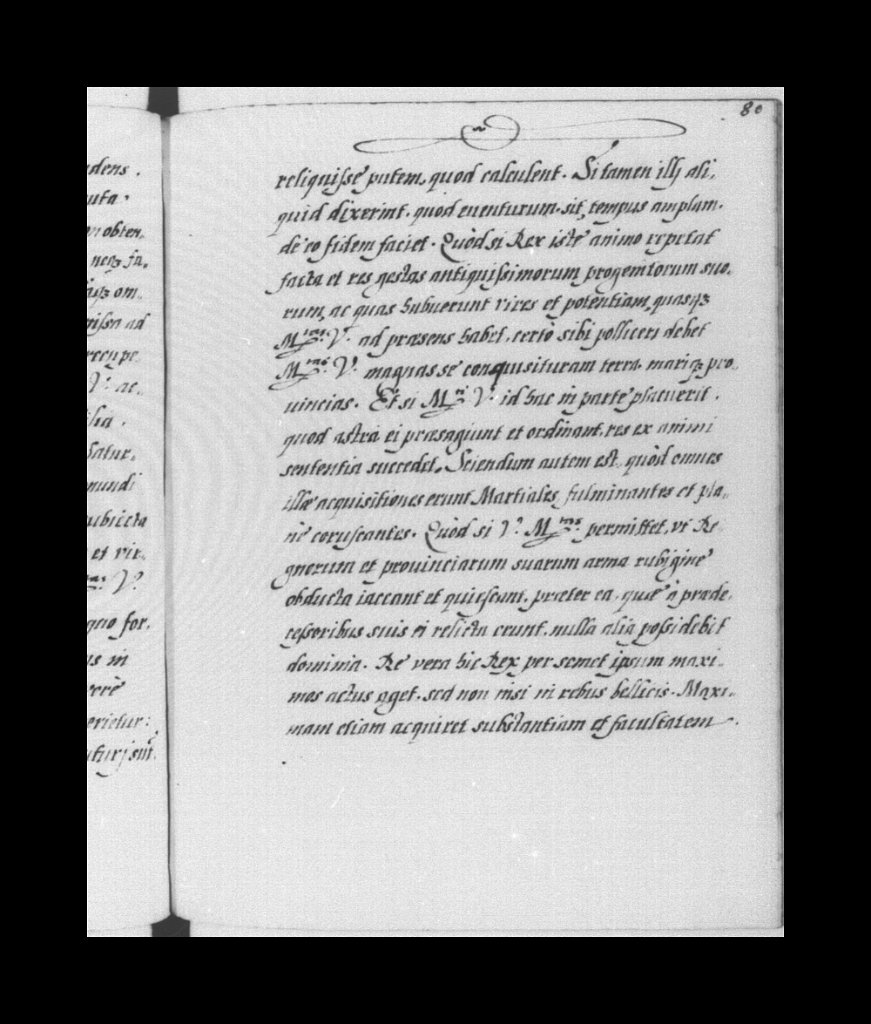 80
reliquisse putem, quod calculent. Si tamen illj ali,
quid dixerint, quod euenturum sit, tempus amplam
de eo fidem faciet. Quòd si Rex iste animo repetat
facta et res gestas antiquissimorum progenitorum suo,
rum, ac quas habuerunt vires et potentiam, quasqꝫ
V. ad præsens habet, certò sibi polliceri debet
V. magnas se conquisituram terra mariqꝫ pro,
uincias. Et si V. id hac in parte placuerit,
quod astra ei præsagiunt et ordinant, res ex animi
sententia succedet. Sciendum autem est, quòd omnes
illæ acquisitiones erunt Martiales, fulminantes et pla,
nè coruscantes. Quòd si V. permittet, vt Re,
gnorum et prouinciarum suarum arma rubigine
obducta iaceant et quiescant, præter ea, quæ à præde,
cessoribus suis ei relicta erunt, nulla alia possidebit
dominia. Re vera hic Rex per semet ipsum maxi,
mos actus aget, sed non nisi in rebus bellicis. Maxi,
mam etiam acquiret substantiam et facultatem
ndens.
uta
obten,
neqꝫ
om,
ad
V. ac,
Satur,
mundi
ubiecta
et vir,
V.
quo for,
in
verè